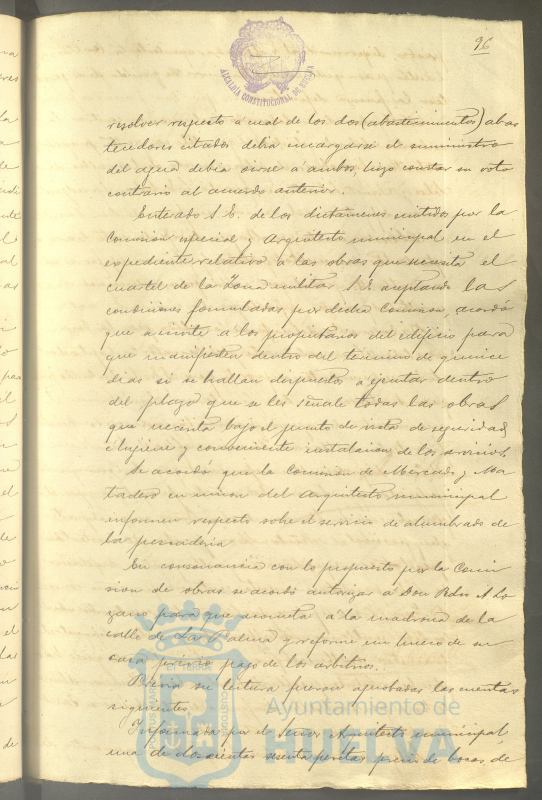 96
ALCALDIA CONSTITUCIONAL DE HUELVA
resolver respecto a cual de los dos (abastecimientos) abas
tecedores citados debia encargarse el suministro
del agua debia oirse a ambos, hizo constar su voto
contrario al acuerdo anterior.
Enterado S. E. de los dictamenes emitidos por la
Comision especial y Arquitecto municipal en el
expediente relativo a las obras que necesita el
cuartel de la Zona militar S. E. aceptando las
condiciones formuladas por dicha Comision, acordó
que se invite a los propietarios del edificio para
que manifiesten dentro del termino de quince
dias si se hallan dispuestos a ejecutar dentro
del plazo que se les señale todas las obras
que necesita bajo el punto de vista de seguridad,
e higiene y conveniente instalacion de los servicios.
Se acordó que la Comision de Mercado y Ma
tadero en union del Arquitecto municipal
informen respecto sobre el servicio de alumbrado de
la pescaderia
En consonancia con lo propuesto por la Comi
sion de obras se acordó autorizar a Don Pedro A. Lo
zano para que acometa á la madrona de la
calle de La Palma y reforme un hueco de su
casa previo pago de los arbitrios.
Previa su lectura fueron aprobadas las cuentas
siguientes
Informada por el Señor Arquitecto municipal
una de doscientas sesenta pesetas precio de bocas de
Ayuntamiento de
HUELVA